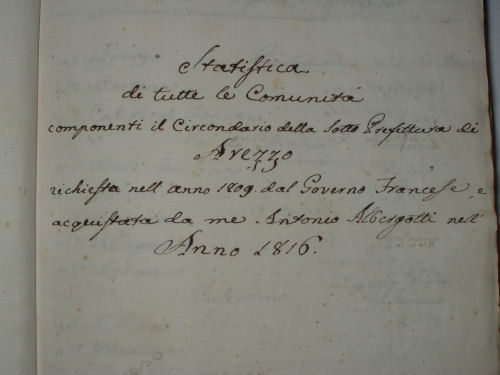 Statistica
di tutte le Comunità
componenti il Circondario della Sotto Prefettura di
Arezzo
richiesta nell'anno 1809. dal Governo Francese, e
acquistata da me Antonio Albergotti nell'
Anno 1816.